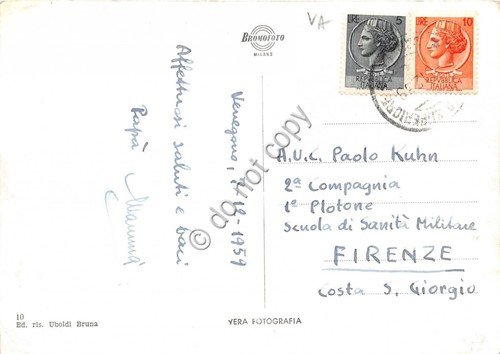 VA
BROMOFOTO
MILANO
LIRE 5
REPUBBLICA
ITALIANA
LIRE 10
REPUBBLICA
ITALIANA
Affettuosi saluti e baci
Papà Mammà
Venegono,
12-1959
do not copy
A.U.C. Paolo Kuhn
2ª Compagnia
1º Plotone
Scuola di Sanità Militare
FIRENZE
Costa S. Giorgio
10
Ed. ris. Uboldi Bruna
VERA FOTOGRAFIA